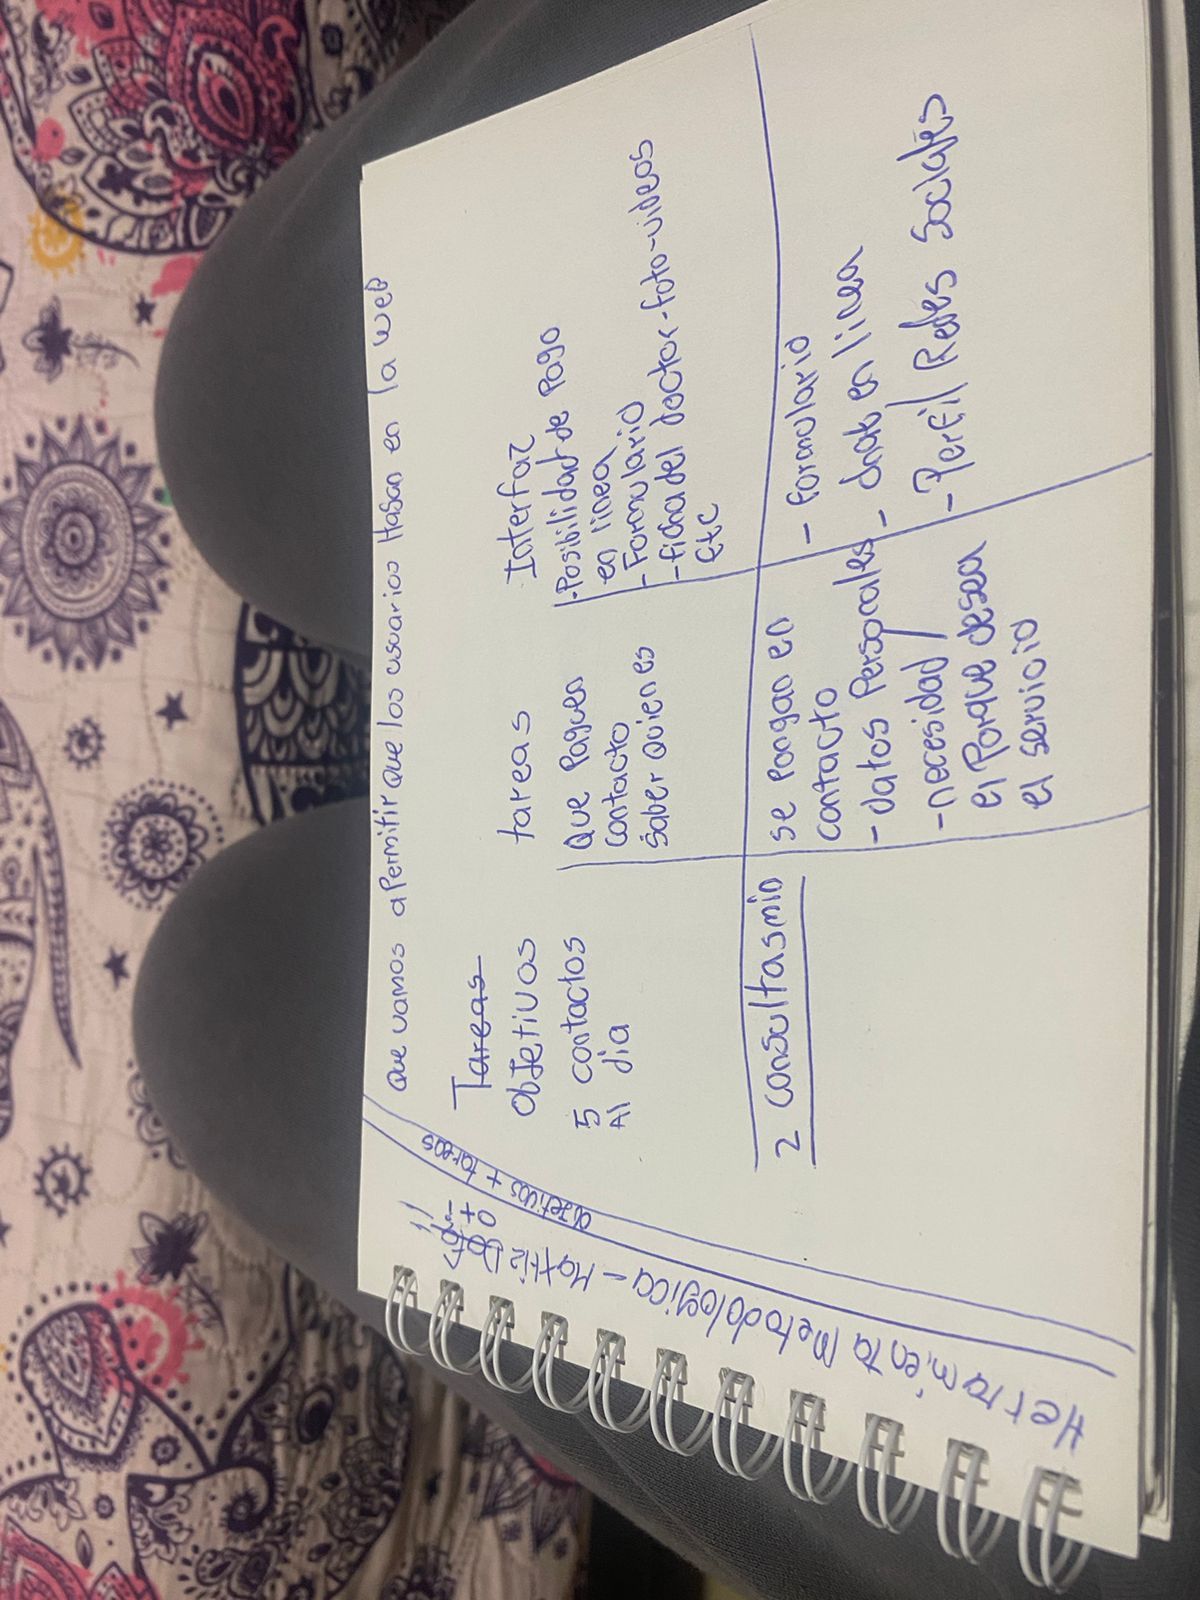 Herramienta Metodologica - Matriz Dafo
objetivos + tareas
Que vamos a Permitir que los usuarios Hagan en la web
Tareas
objetivos
tareas
Interfaz
5 contactos
Al dia
Que Paguen
contacto
saber quien es
- Posibilidad de Pago
en linea
- Formulario
- ficha del doctor - foto - videos
Etc
2 consultas min
se Pongan en
contacto
- datos Personales
- necesidad /
el Porque desea
el servicio
- formulario
- en linea
- Perfil Redes Sociales